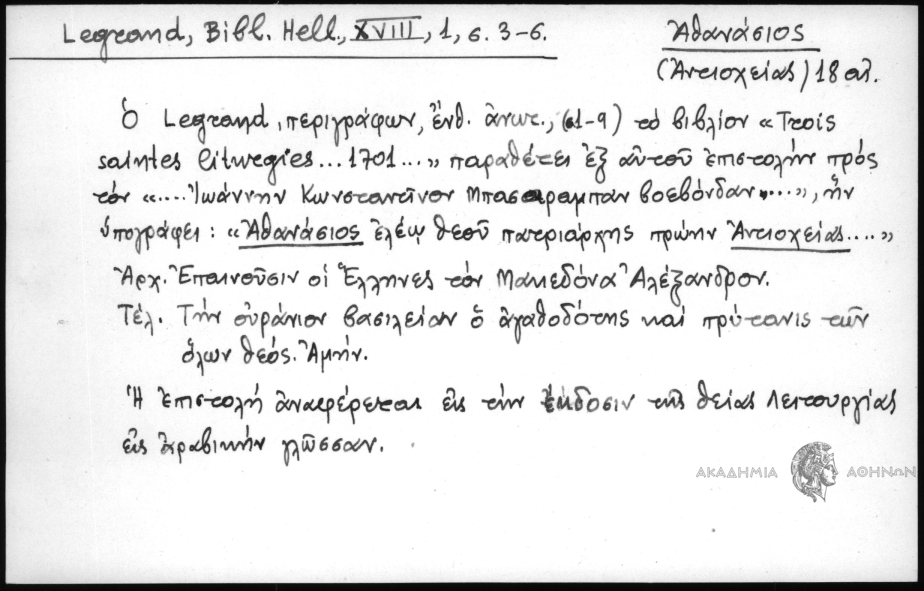 Legrand, Bibl. Hell., XVIII, 1, σ. 3-6.
Ἀθανάσιος
(Ἀντιοχείας) 18 αἰ.
Ὁ Legrand, περιγράφων, ἔνθ. ἀνωτ., (σ 1-9) τὸ βιβλίον «Trois
saintes liturgies... 1701...» παραθέτει ἐξ αὐτοῦ ἐπιστολὴν πρὸς
τὸν «....Ἰωάννην Κωνσταντῖνον Μπασαραμπᾶν βοεβόνδαν....», ἣν
ὑπογράφει: «Ἀθανάσιος ἐλέῳ θεοῦ πατριάρχης πρώην Ἀντιοχείας....»
Ἀρχ. Ἐπαινοῦσιν οἱ Ἕλληνες τὸν Μακεδόνα Ἀλέξανδρον.
Τέλ. Τὴν οὐράνιον βασιλείαν ὁ ἀγαθοδότης καὶ πρύτανις τῶν
ὅλων θεός. Ἀμήν.
Ἡ ἐπιστολὴ ἀναφέρεται εἰς τὴν ἔκδοσιν τῆς θείας Λειτουργίας
εἰς ἀραβικὴν γλῶσσαν.
ΑΚΑΔΗΜΙΑ ΑΘΗΝΩΝ